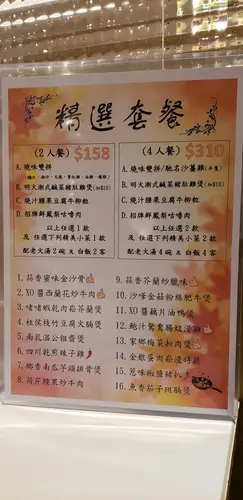 精選套餐
(2人餐) $158
A. 燒味雙拼
B. 明火潮式鹹菜豬肚雞煲
C. 燒汁腰果豆腐牛柳粒
D. 招牌鮮鳳梨咕嚕肉
以上任選1款
及 任選下列精美小菜1款
配老火湯2碗 及 白飯2客
(4人餐) $310
A. 燒味雙拼/馳名沙薑雞
B. 明火潮式鹹菜豬肚雞煲
C. 燒汁腰果豆腐牛柳粒
D. 招牌鮮鳳梨咕嚕肉
以上任選2款
及 任選下列精美小菜2款
配老火湯4碗 及 白飯4客
1. 蒜香蜜味金沙骨
2. XO醬西蘭花炒牛肉
3. 啫啫蝦乾肉崧芥蘭煲
4. 桂侯枝竹豆腐火腩煲
5. 南乳溫公粗齋煲
6. 四川乾煎辣子雞
7. 椰香南瓜芋頭排骨煲
8. 荷芹腰果炒牛肉
9. 蒜香芥蘭炒臘味
10. 沙嗲金菇粉絲肥牛煲
11. XO醬藕片油鴨煲
12. 鮑汁鴛鴦腸蚊滑雞
13. 家鄉梅菜扣肉煲
14. 金銀蛋肉崧浸時蔬
15. 惹味椒鹽豬扒
16. 魚香茄子斑腩煲